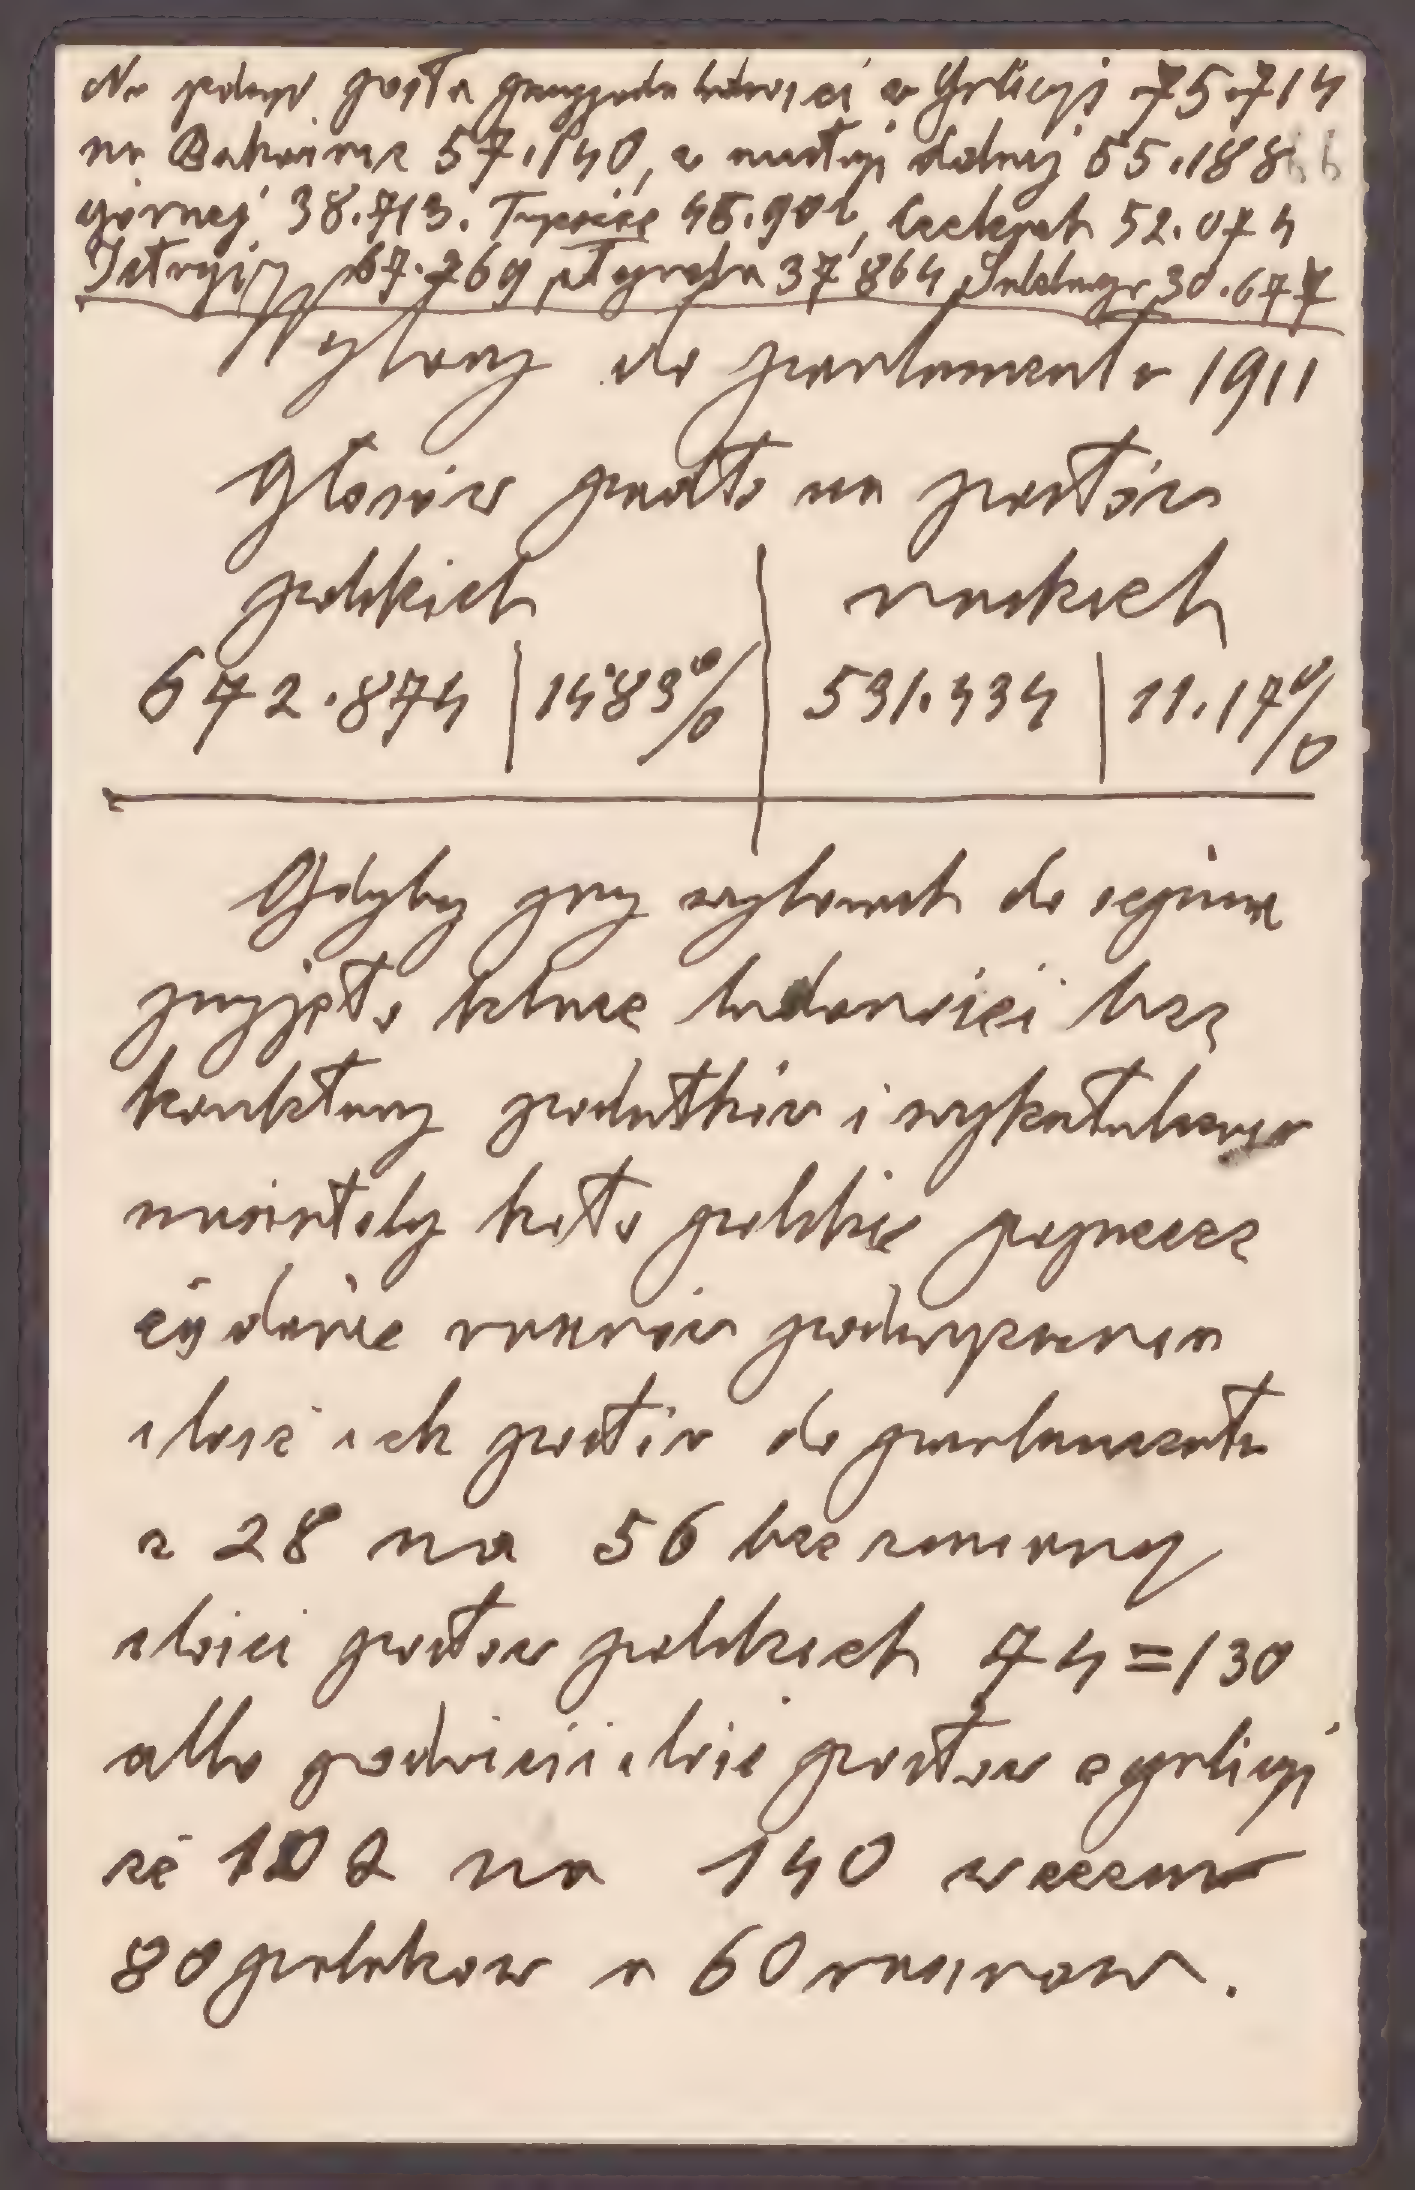 Na jednego posła przypada ludności w Galicyi 75.714
na Bukowinie 57.140, w austryi dolnej 55.188
górnej 38.713. Tyrolu 46.901, Czechach 52.074
Istryi 67.769 Styrya 37 864 Salzburg 30.677
Wybory do parlamentu 1911
Głosów padło na posłów
polskich | ruskich
672.874 | 14'83% | 531.434 | 11.17%
Gdyby przy wyborach do sejmu
przyjęto klucz ludności bez
podatków i
musiałoby koło polskie poprzeć
żądanie rusinów podwyższenia
ilość ich posłów do parlamentu
z 28 na 56 bez zmiany
ilości posłów polskich 74=130
albo podnieść ilość posłów z galicyi
ze 102 na 140 w czem
80 polaków a 60 rusinow.